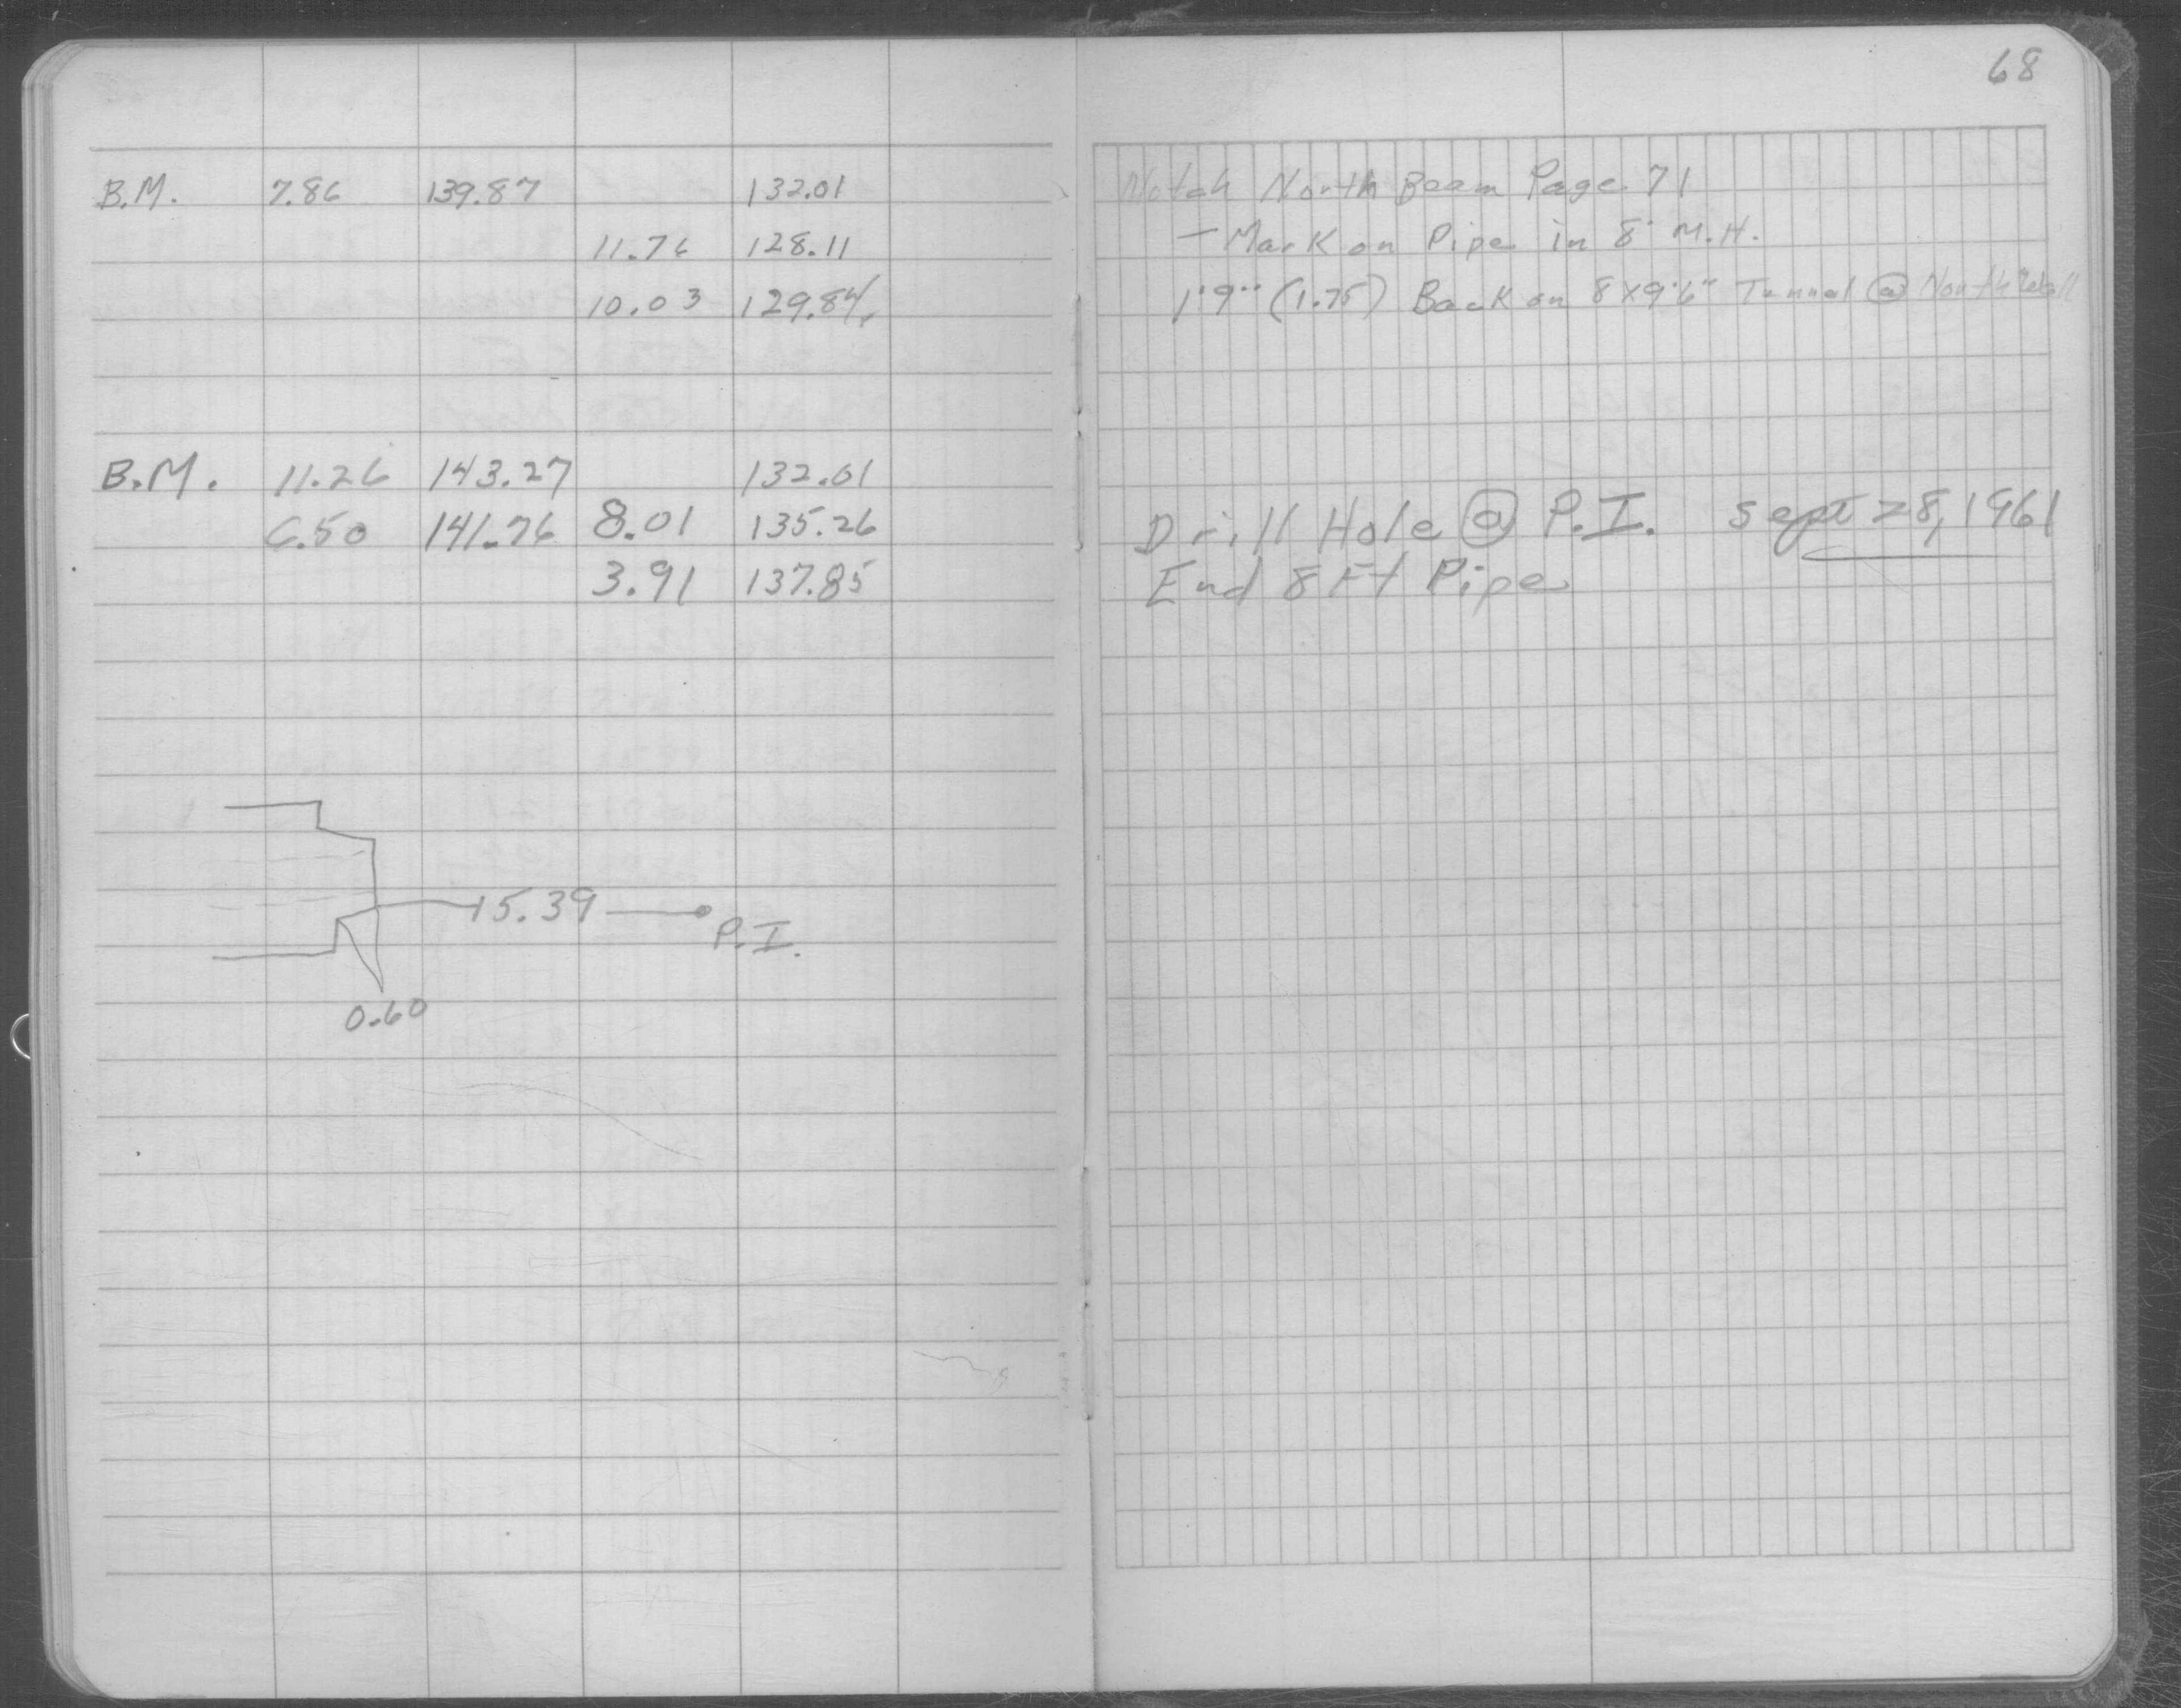 68
B.M. 7.86 139.87 132.01 Notch North Beam Page 71
11.76 128.11 — Mark on Pipe in 8' M.H.
10.03 129.84 1'9" (1.75) Back on 8x9'6" Tunnel @ North Wall
B.M. 11.26 143.27 132.01
6.50 141.76 8.01 135.26 Drill Hole @ P.I. Sept 28, 1961
3.91 137.85 End 8 Ft Pipe
15.39
P.I.
0.60